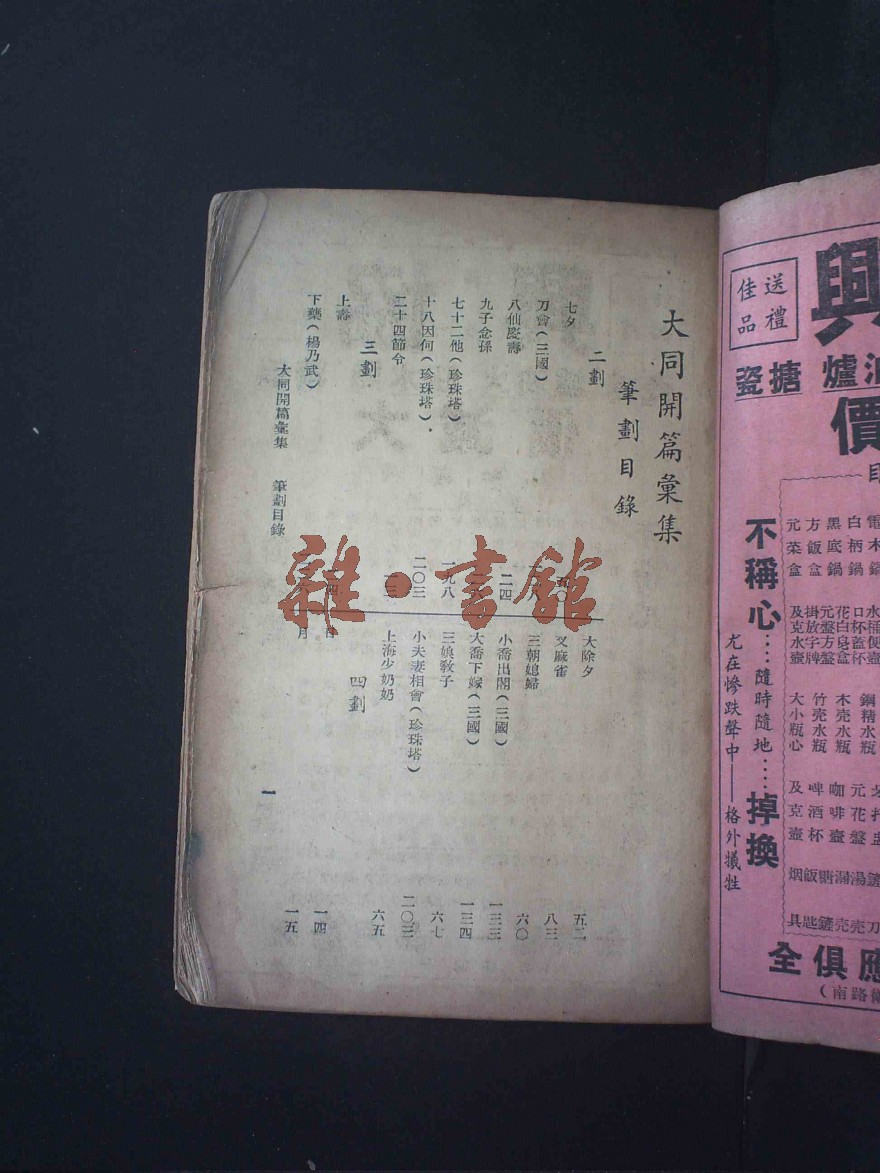 興
送禮
佳品
搪瓷
爐
價
白柄鍋
黑底鍋
方飯盒
元菜盒
口杯蓋
花白皂盒
元盤方盤
掛放字牌
及克水壺
鋼精水瓶
木壳水瓶
竹壳水瓶
大小瓶心
元花盤
咖啡壺
啤酒杯
及克壺
不稱心……隨時隨地……掉換
尤在慘跌聲中——格外犧牲
全俱應
大同開篇彙集
筆劃目錄
二劃
七夕 五〇
刀會(三國)
八仙慶壽 二四
九子念孫
七十二他(珍珠塔) 一九八
十八因何(珍珠塔) 二〇三
二十四節令
三劃
上壽
下藥(楊乃武)
大除夕 五二
叉麻雀 八三
三朝媳婦 六〇
小喬出閣(三國) 一三三
大喬下嫁(三國) 一三四
三娘教子 六七
小夫妻相會(珍珠塔) 二〇三
上海少奶奶 六五
四劃
一四
月 一五
大同開篇彙集 筆劃目錄
一
雜·書館